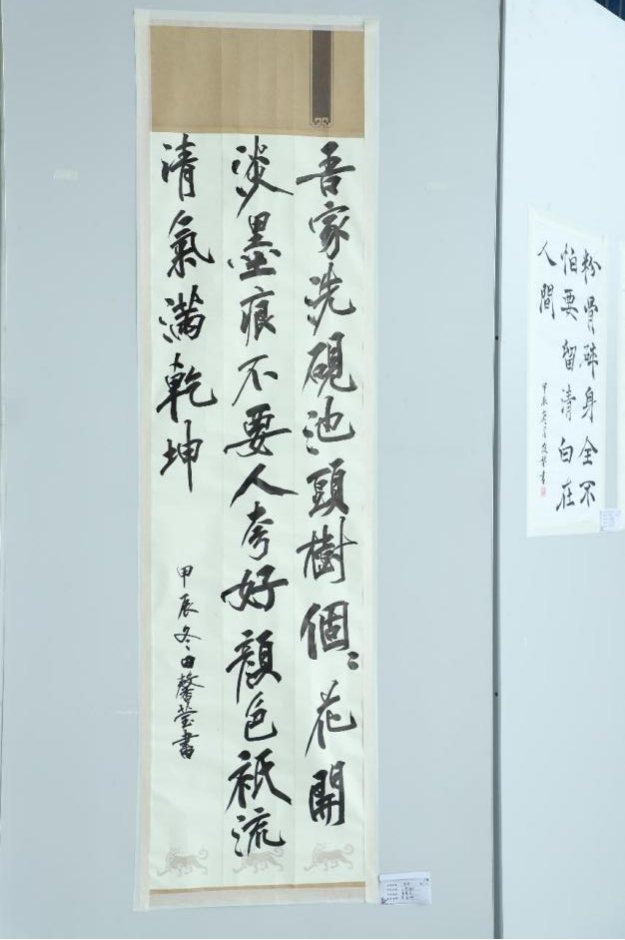 吾家洗硯池頭樹個々花開
淡墨痕不要人夸好顏色祇流
清氣滿乾坤
甲辰冬田馨莹書
粉骨碎身全不
怕要留清白在
人間